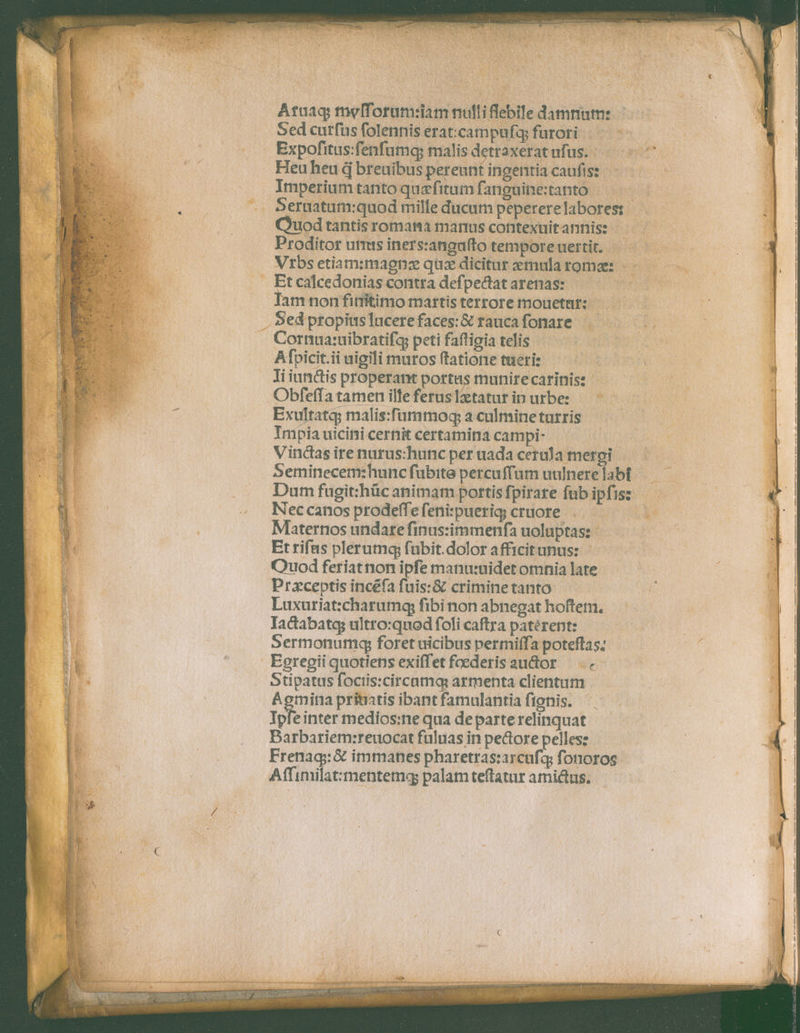 Atuaq; myſſorum:iam nulli flebile damnum:
Sed curſus ſolennis erat:campuſq; furori
Expoſitus:ſenſumq; malis detraxerat uſus.
Heu heu q̃ breuibus pereunt ingentia cauſis:
Imperium tanto quæſitum ſanguine:tanto
Seruatum:quod mille ducum peperere labores:
Quod tantis romana manus contexuit annis:
Proditor unus iners:anguſto tempore uertit.
Vrbs etiam:magnæ quæ dicitur æmula romæ:
Et calcedonias contra deſpectat arenas:
Iam non finitimo martis terrore mouetur:
Sed propius lucere faces:& rauca ſonare
Cornua:uibratiſq; peti faſtigia telis
Aſpicit.ii uigili muros ſtatione tueri:
Ii iunctis properant portus munire carinis:
Obſeſſa tamen ille ferus lætatur in urbe:
Exultatq; malis:ſummoq; a culmine turris
Impia uicini cernit certamina campi-
Vinctas ire nurus:hunc per uada cerula mergi
Seminecem:hunc ſubito percuſſum uulnere labi
Dum fugit:hũc animam portis ſpirare ſub ipſis:
Nec canos prodeſſe ſeni:pueriq; cruore
Maternos undare ſinus:immenſa uoluptas:
Et riſus plerumq; ſubit.dolor afficit unus:
Quod feriat non ipſe manu:uidet omnia late
Præceptis incẽſa ſuis:& crimine tanto
Luxuriat:charumq; ſibi non abnegat hoſtem.
Iactabatq; ultro:quod ſoli caſtra paterent:
Sermonumq; foret uicibus permiſſa poteſtas:
Egregii quotiens exiſſet fœderis auctor
Stipatus ſociis:circumq; armenta clientum
Agmina priuatis ibant famulantia ſignis.
Ipſe inter medios:ne qua de parte relinquat
Barbariem:reuocat fuluas in pectore pelles:
Frenaq;:& immanes pharetras:arcuſq; ſonoros
Aſſimilat:mentemq; palam teſtatur amictus.